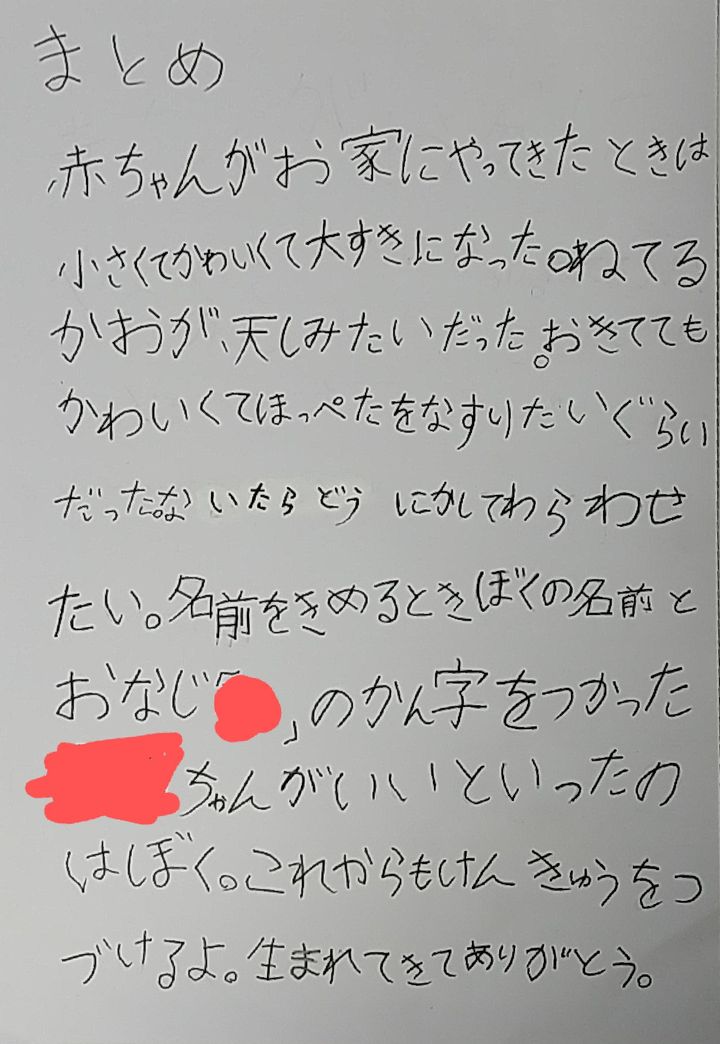 まとめ
赤ちゃんがお家にやってきたときは
小さくてかわいくて大すきになった。ねてる
かおうが、天しみたいだった。おきてても
かわいくてほっぺたをなすりたいぐらい
だった。ないたらどうにかしてわらわせ
たい。名前をきめるときぼくの名前と
おなじ「」のかん字をつかった
ちゃんがいいといったの
はぼく。これからもけんきゅうをつ
づけるよ。生まれてきてありがとう。